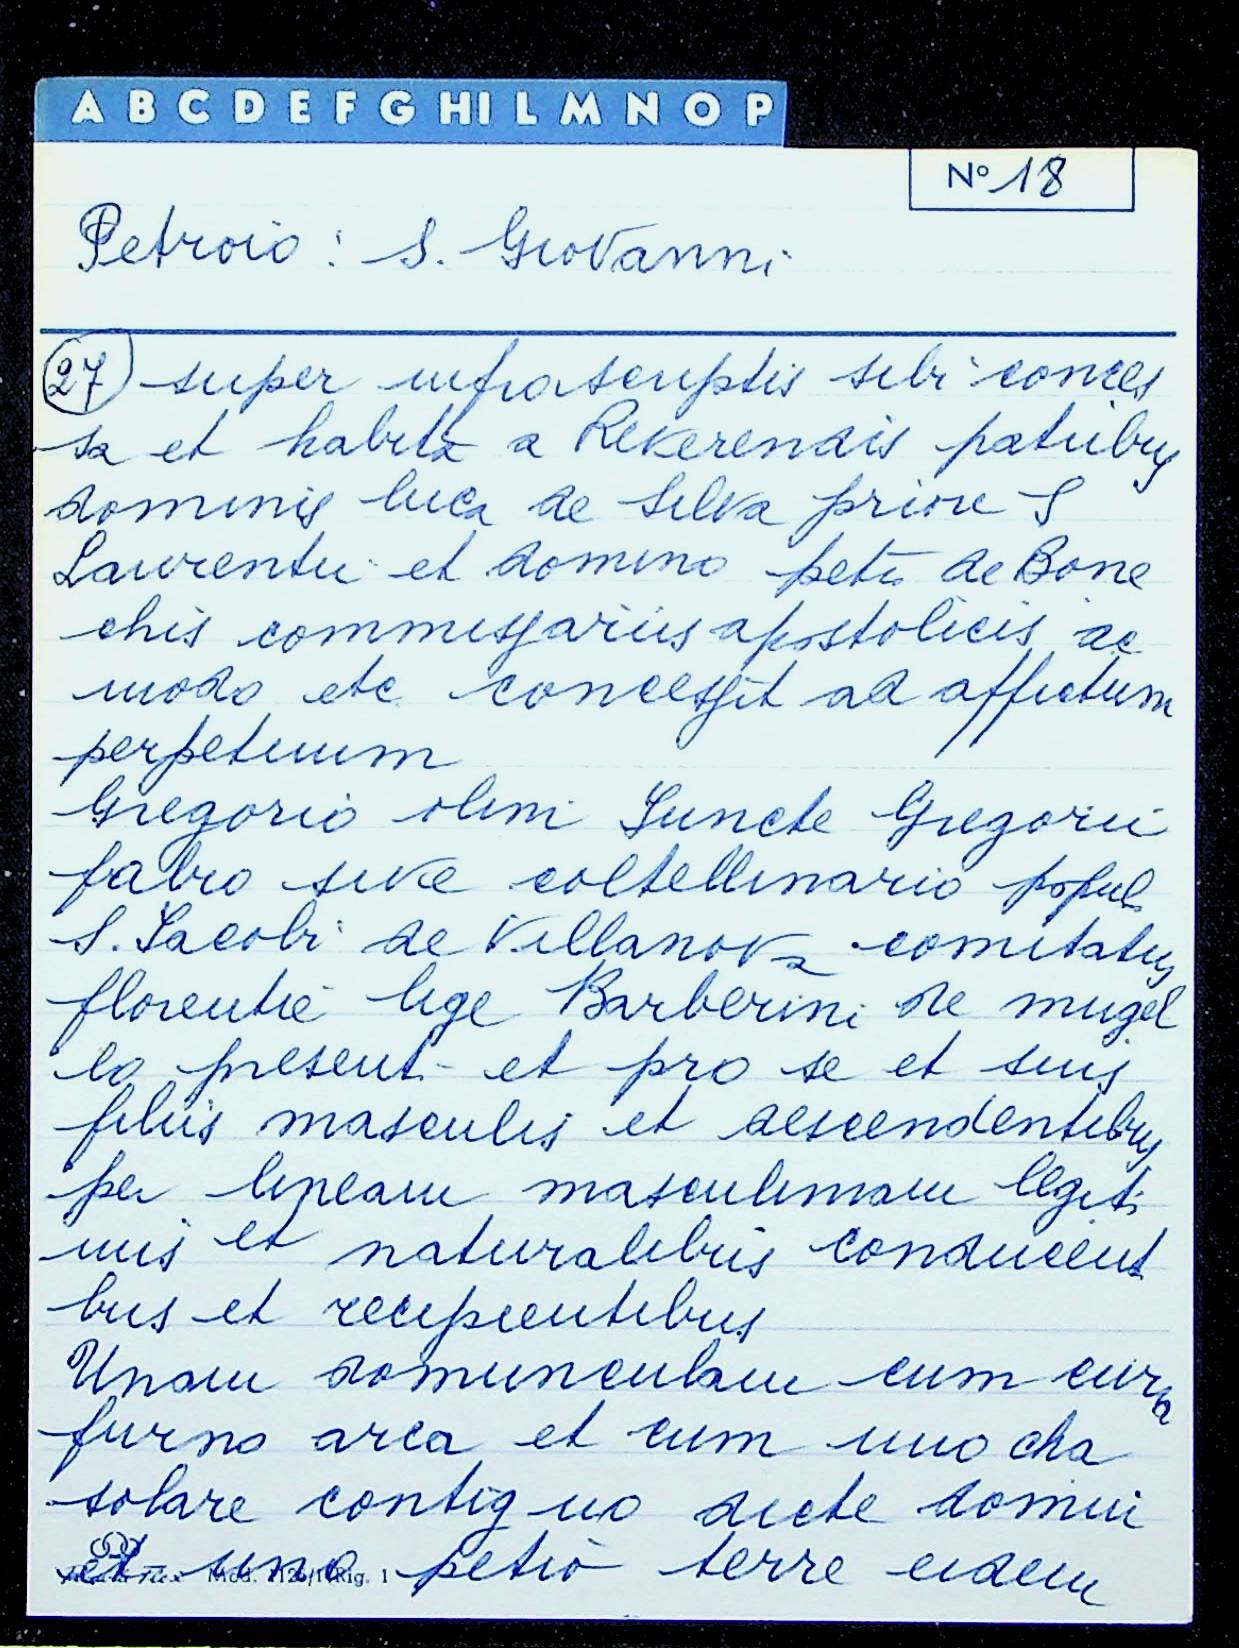 A B C D E F G H I L M N O P
N° 18
Petroio : S. Giovanni
27 super infrascriptis sibi conces
sa et habita a Reverendis patribus
dominis luca de Silva priore S
Laurentii et domino petro de Bone
chis commissariis apostolicis ac
modo etc concessit ad affictum
perpetuum
Gregorio olim Sancte Gregorii
fabro sive coltellinario popul
S. Iacobi de Villanova comitatus
florentie lige Barberini de mugel
lo present- et pro se et suis
filiis masculis et descendentibus
per lineam masculinam legiti
mis et naturalibus conducent
bus et recipientibus
Unam domunculam cum curia
furno area et cum uno cha
solare contiguo dicte domui
et uno petio terre eidem
Mod. Rig. 1